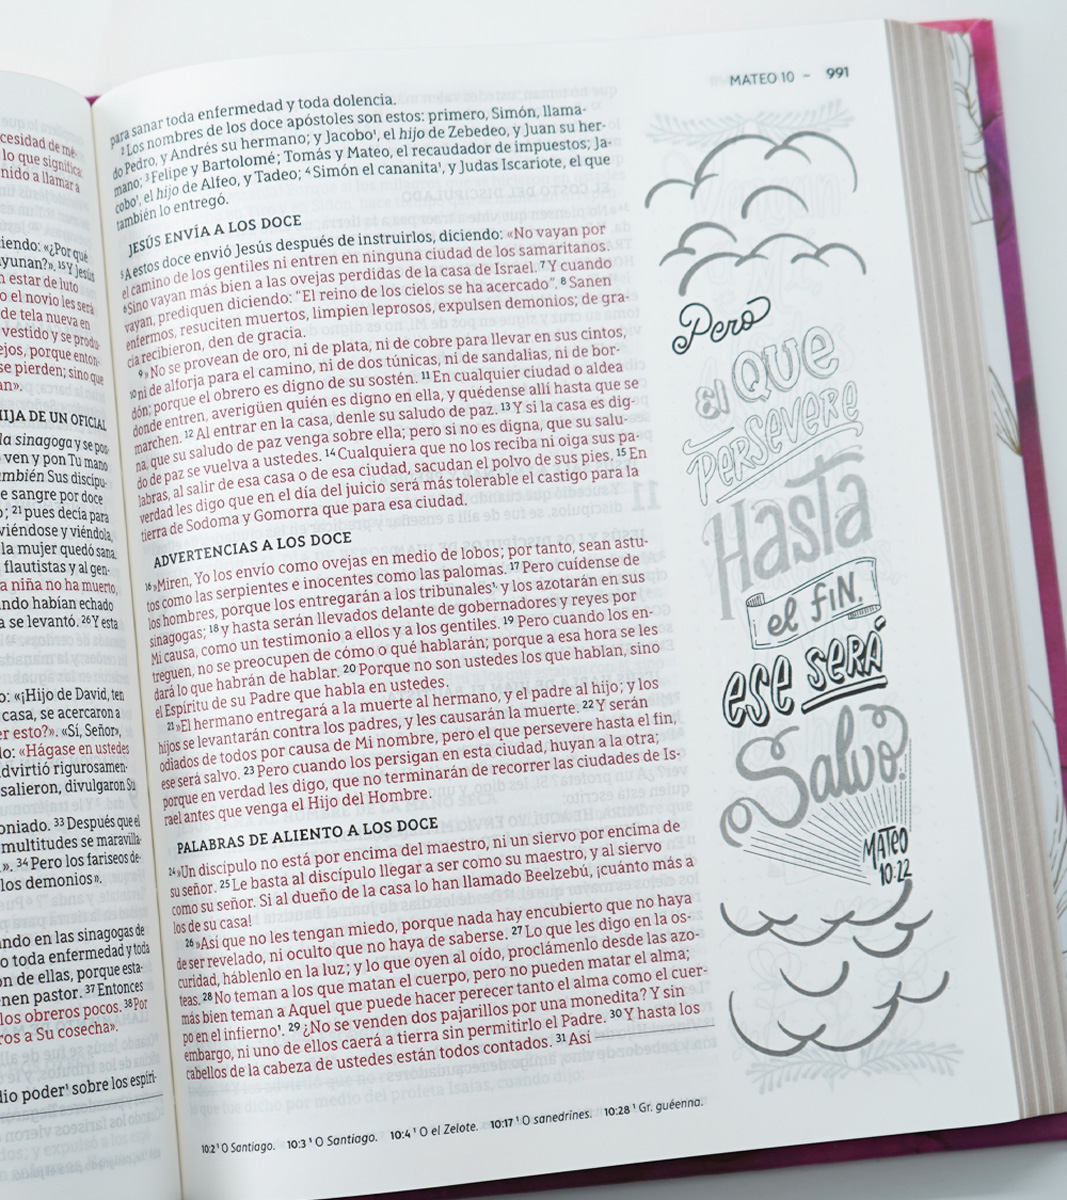 cesidad de mé-
lo que significa
nido a llamar a
iendo: «¿Por qué
yunan?». 15 Y Jesús
n estar de luto
o el novio les será
de tela nueva en
vestido y se produ-
ejos, porque enton-
se pierden; sino que
an».
HIJA DE UN OFICIAL
la sinagoga y se pos-
ven y pon Tu mano
ambién Sus discípu-
e sangre por doce
o; 21 pues decía para
viéndose y viéndola,
la mujer quedó sana
flautistas y al gen-
a niña no ha muerto,
ando habían echado
a se levantó. 26 Y esta
o: «¡Hijo de David, ten
casa, se acercaron a
er esto?». «Sí, Señor»,
do: «Hágase en ustedes
advirtió rigurosamen-
salieron, divulgaron Su
oniado. 33 Después que el
multitudes se maravilla-
». 34 Pero los fariseos de-
los demonios».
ando en las sinagogas de
o toda enfermedad y toda
ón de ellas, porque esta-
nen pastor. 37 Entonces
los obreros pocos. 38 Por
ros a Su cosecha».
dio poder¹ sobre los espíri-
MATEO 10 – 991
para sanar toda enfermedad y toda dolencia.
2 Los nombres de los doce apóstoles son estos: primero, Simón, llama-
do Pedro, y Andrés su hermano; y Jacobo¹, el hijo de Zebedeo, y Juan su her-
mano; 3 Felipe y Bartolomé; Tomás y Mateo, el recaudador de impuestos; Ja-
cobo¹, el hijo de Alfeo, y Tadeo; 4 Simón el cananita¹, y Judas Iscariote, el que
también lo entregó.
JESÚS ENVÍA A LOS DOCE
5 A estos doce envió Jesús después de instruirlos, diciendo: «No vayan por
el camino de los gentiles ni entren en ninguna ciudad de los samaritanos.
6 Sino vayan más bien a las ovejas perdidas de la casa de Israel. 7 Y cuando
vayan, prediquen diciendo: “El reino de los cielos se ha acercado”. 8 Sanen
enfermos, resuciten muertos, limpien leprosos, expulsen demonios; de gra-
cia recibieron, den de gracia.
9 »No se provean de oro, ni de plata, ni de cobre para llevar en sus cintos,
10 ni de alforja para el camino, ni de dos túnicas, ni de sandalias, ni de bor-
dón; porque el obrero es digno de su sostén. 11 En cualquier ciudad o aldea
donde entren, averigüen quién es digno en ella, y quédense allí hasta que se
marchen. 12 Al entrar en la casa, denle su saludo de paz. 13 Y si la casa es dig-
na, que su saludo de paz venga sobre ella; pero si no es digna, que su salu-
do de paz se vuelva a ustedes. 14 Cualquiera que no los reciba ni oiga sus pa-
labras, al salir de esa casa o de esa ciudad, sacudan el polvo de sus pies. 15 En
verdad les digo que en el día del juicio será más tolerable el castigo para la
tierra de Sodoma y Gomorra que para esa ciudad.
ADVERTENCIAS A LOS DOCE
16 »Miren, Yo los envío como ovejas en medio de lobos; por tanto, sean astu-
tos como las serpientes e inocentes como las palomas. 17 Pero cuídense de
los hombres, porque los entregarán a los tribunales¹ y los azotarán en sus
sinagogas; 18 y hasta serán llevados delante de gobernadores y reyes por
Mi causa, como un testimonio a ellos y a los gentiles. 19 Pero cuando los en-
treguen, no se preocupen de cómo o qué hablarán; porque a esa hora se les
dará lo que habrán de hablar. 20 Porque no son ustedes los que hablan, sino
el Espíritu de su Padre que habla en ustedes.
21 »El hermano entregará a la muerte al hermano, y el padre al hijo; y los
hijos se levantarán contra los padres, y les causarán la muerte. 22 Y serán
odiados de todos por causa de Mi nombre, pero el que persevere hasta el fin,
ese será salvo. 23 Pero cuando los persigan en esta ciudad, huyan a la otra;
porque en verdad les digo, que no terminarán de recorrer las ciudades de Is-
rael antes que venga el Hijo del Hombre.
PALABRAS DE ALIENTO A LOS DOCE
24 »Un discípulo no está por encima del maestro, ni un siervo por encima de
su señor. 25 Le basta al discípulo llegar a ser como su maestro, y al siervo
como su señor. Si al dueño de la casa lo han llamado Beelzebú, ¡cuánto más a
los de su casa!
26 »Así que no les tengan miedo, porque nada hay encubierto que no haya
de ser revelado, ni oculto que no haya de saberse. 27 Lo que les digo en la os-
curidad, háblenlo en la luz; y lo que oyen al oído, proclámenlo desde las azo-
teas. 28 No teman a los que matan el cuerpo, pero no pueden matar el alma;
más bien teman a Aquel que puede hacer perecer tanto el alma como el cuer-
po en el infierno¹. 29 ¿No se venden dos pajarillos por una monedita? Y sin
embargo, ni uno de ellos caerá a tierra sin permitirlo el Padre. 30 Y hasta los
cabellos de la cabeza de ustedes están todos contados. 31 Así
10:2 ¹ O Santiago. 10:3 ¹ O Santiago. 10:4 ¹ O el Zelote. 10:17 ¹ O sanedrines. 10:28 ¹ Gr. guéenna.
Pero
el QUE
PERSEVERE
Hasta
el fin.
ese SERÁ
Salvo.
MATEO
10:22